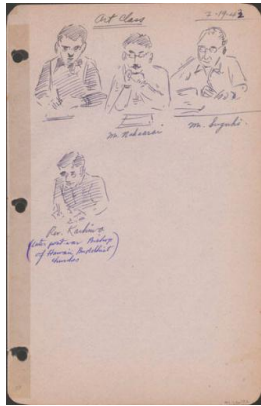 Art Class
2-19-43
Mr.
Mr. Suzuki.
Rev.
(later post war Bishop
of Hawaii Buddhist
Churches)